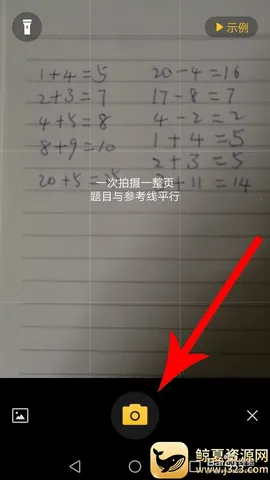 示例
1+4=5
2+3=7
4+5=8
8+9=10
20+5=25
20-4=16
17-8=7
4-2=2
1+4=5
2+3=5
+11=14
一次拍摄一整页
题目与参考线平行
鲸夏资源网
www.j323.com